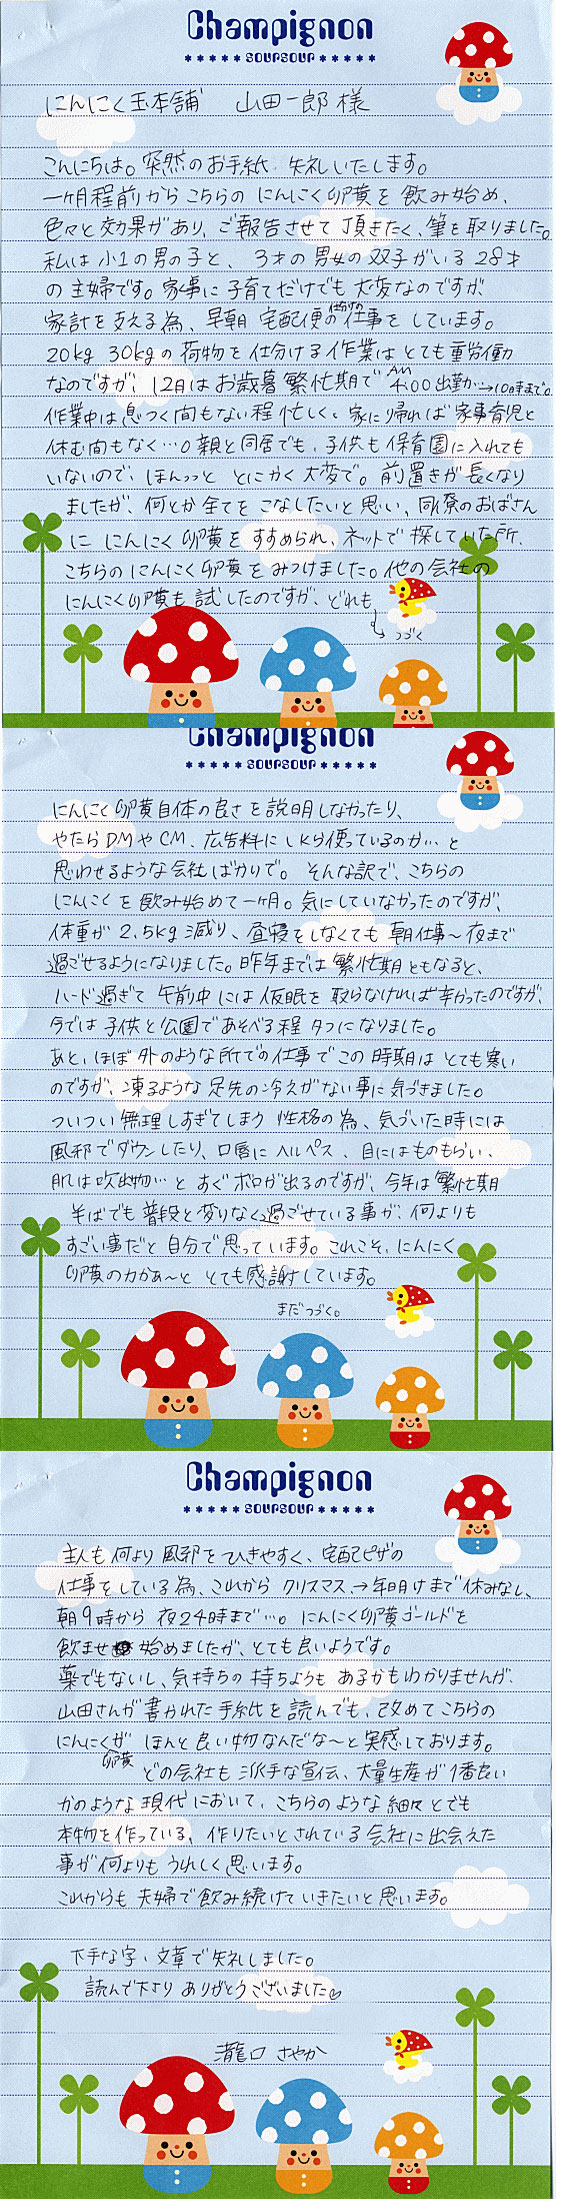 Champignon
SOUPSOUP
にんにく玉本舗 山田一郎様
こんにちは。突然のお手紙 失礼いたします。
一ヶ月程前から こちらの にんにく卵黄を 飲み始め、
色々と効果があり、ご報告させて頂きたく、筆を取りました。
私は小1の男の子と、3才の男女の双子がいる28才
の主婦です。家事に子育てだけでも大変なのですが、
家計を支える為、早朝 宅配便の仕分けの仕事をしています。
20kg 30kgの荷物を仕分ける作業はとても重労働
なのですが、12月はお歳暮繁忙期でAM4:00出勤→10時まで。
作業中は息つく間もない程忙しく、家に帰れば家事育児と
休む間もなく…。親と同居でも、子供も保育園に入れても
いないので、ほんっっと とにかく大変で。前置きが長くなり
ましたが、何とか全てをこなしたいと思い、同僚のおばさん
に にんにく卵黄をすすめられ、ネットで探していた所、
こちらのにんにく卵黄をみつけました。他の会社の
にんにく卵黄も試したのですが、どれも
つづく
Champignon
SOUPSOUP
にんにく卵黄自体の良さを説明しなかったり、
やたらDMやCM、広告料にいくら使っているのか…と
思わせるような会社ばかりで。そんな訳で、こちらの
にんにくを飲み始めて一ヶ月。気にしていなかったのですが、
体重が2.5kg減り、昼寝をしなくても朝仕事〜夜まで
過ごせるようになりました。昨年までは繁忙期ともなると、
ハード過ぎて午前中には仮眠を取らなければ辛かったのですが、
今では子供と公園であそべる程タフになりました。
あと、ほぼ外のような所での仕事でこの時期はとても寒い
のですが、凍るような足先の冷えがない事に気づきました。
ついつい無理しすぎてしまう性格の為、気づいた時には
風邪でダウンしたり、口唇にヘルペス、目にはものもらい、
肌は吹出物…とすぐボロが出るのですが、今年は繁忙期
半ばでも普段と変りなく過ごせている事が、何よりも
すごい事だと自分で思っています。これこそ、にんにく
卵黄の力かぁ〜と とても感謝しています。
まだつづく。
Champignon
SOUPSOUP
主人も何より風邪をひきやすく、宅配ピザの
仕事をしている為、これからクリスマス、→年明けまで休みなし、
朝9時から夜24時まで…。にんにく卵黄ゴールドを
飲ませ始めましたが、とても良いようです。
薬でもないし、気持ちの持ちようもあるかもわかりませんが、
山田さんが書かれた手紙を読んでも、改めてこちらの
にんにく卵黄が ほんと良い物なんだな〜と実感しております。
どの会社も派手な宣伝、大量生産が1番良い
かのような現代において、こちらのような細々とでも
本物を作っている、作りたいとされている会社に出会えた
事が何よりもうれしく思います。
これからも夫婦で飲み続けていきたいと思います。
下手な字、文章で失礼しました。
読んで下さりありがとうございました♡
瀧口 さやか